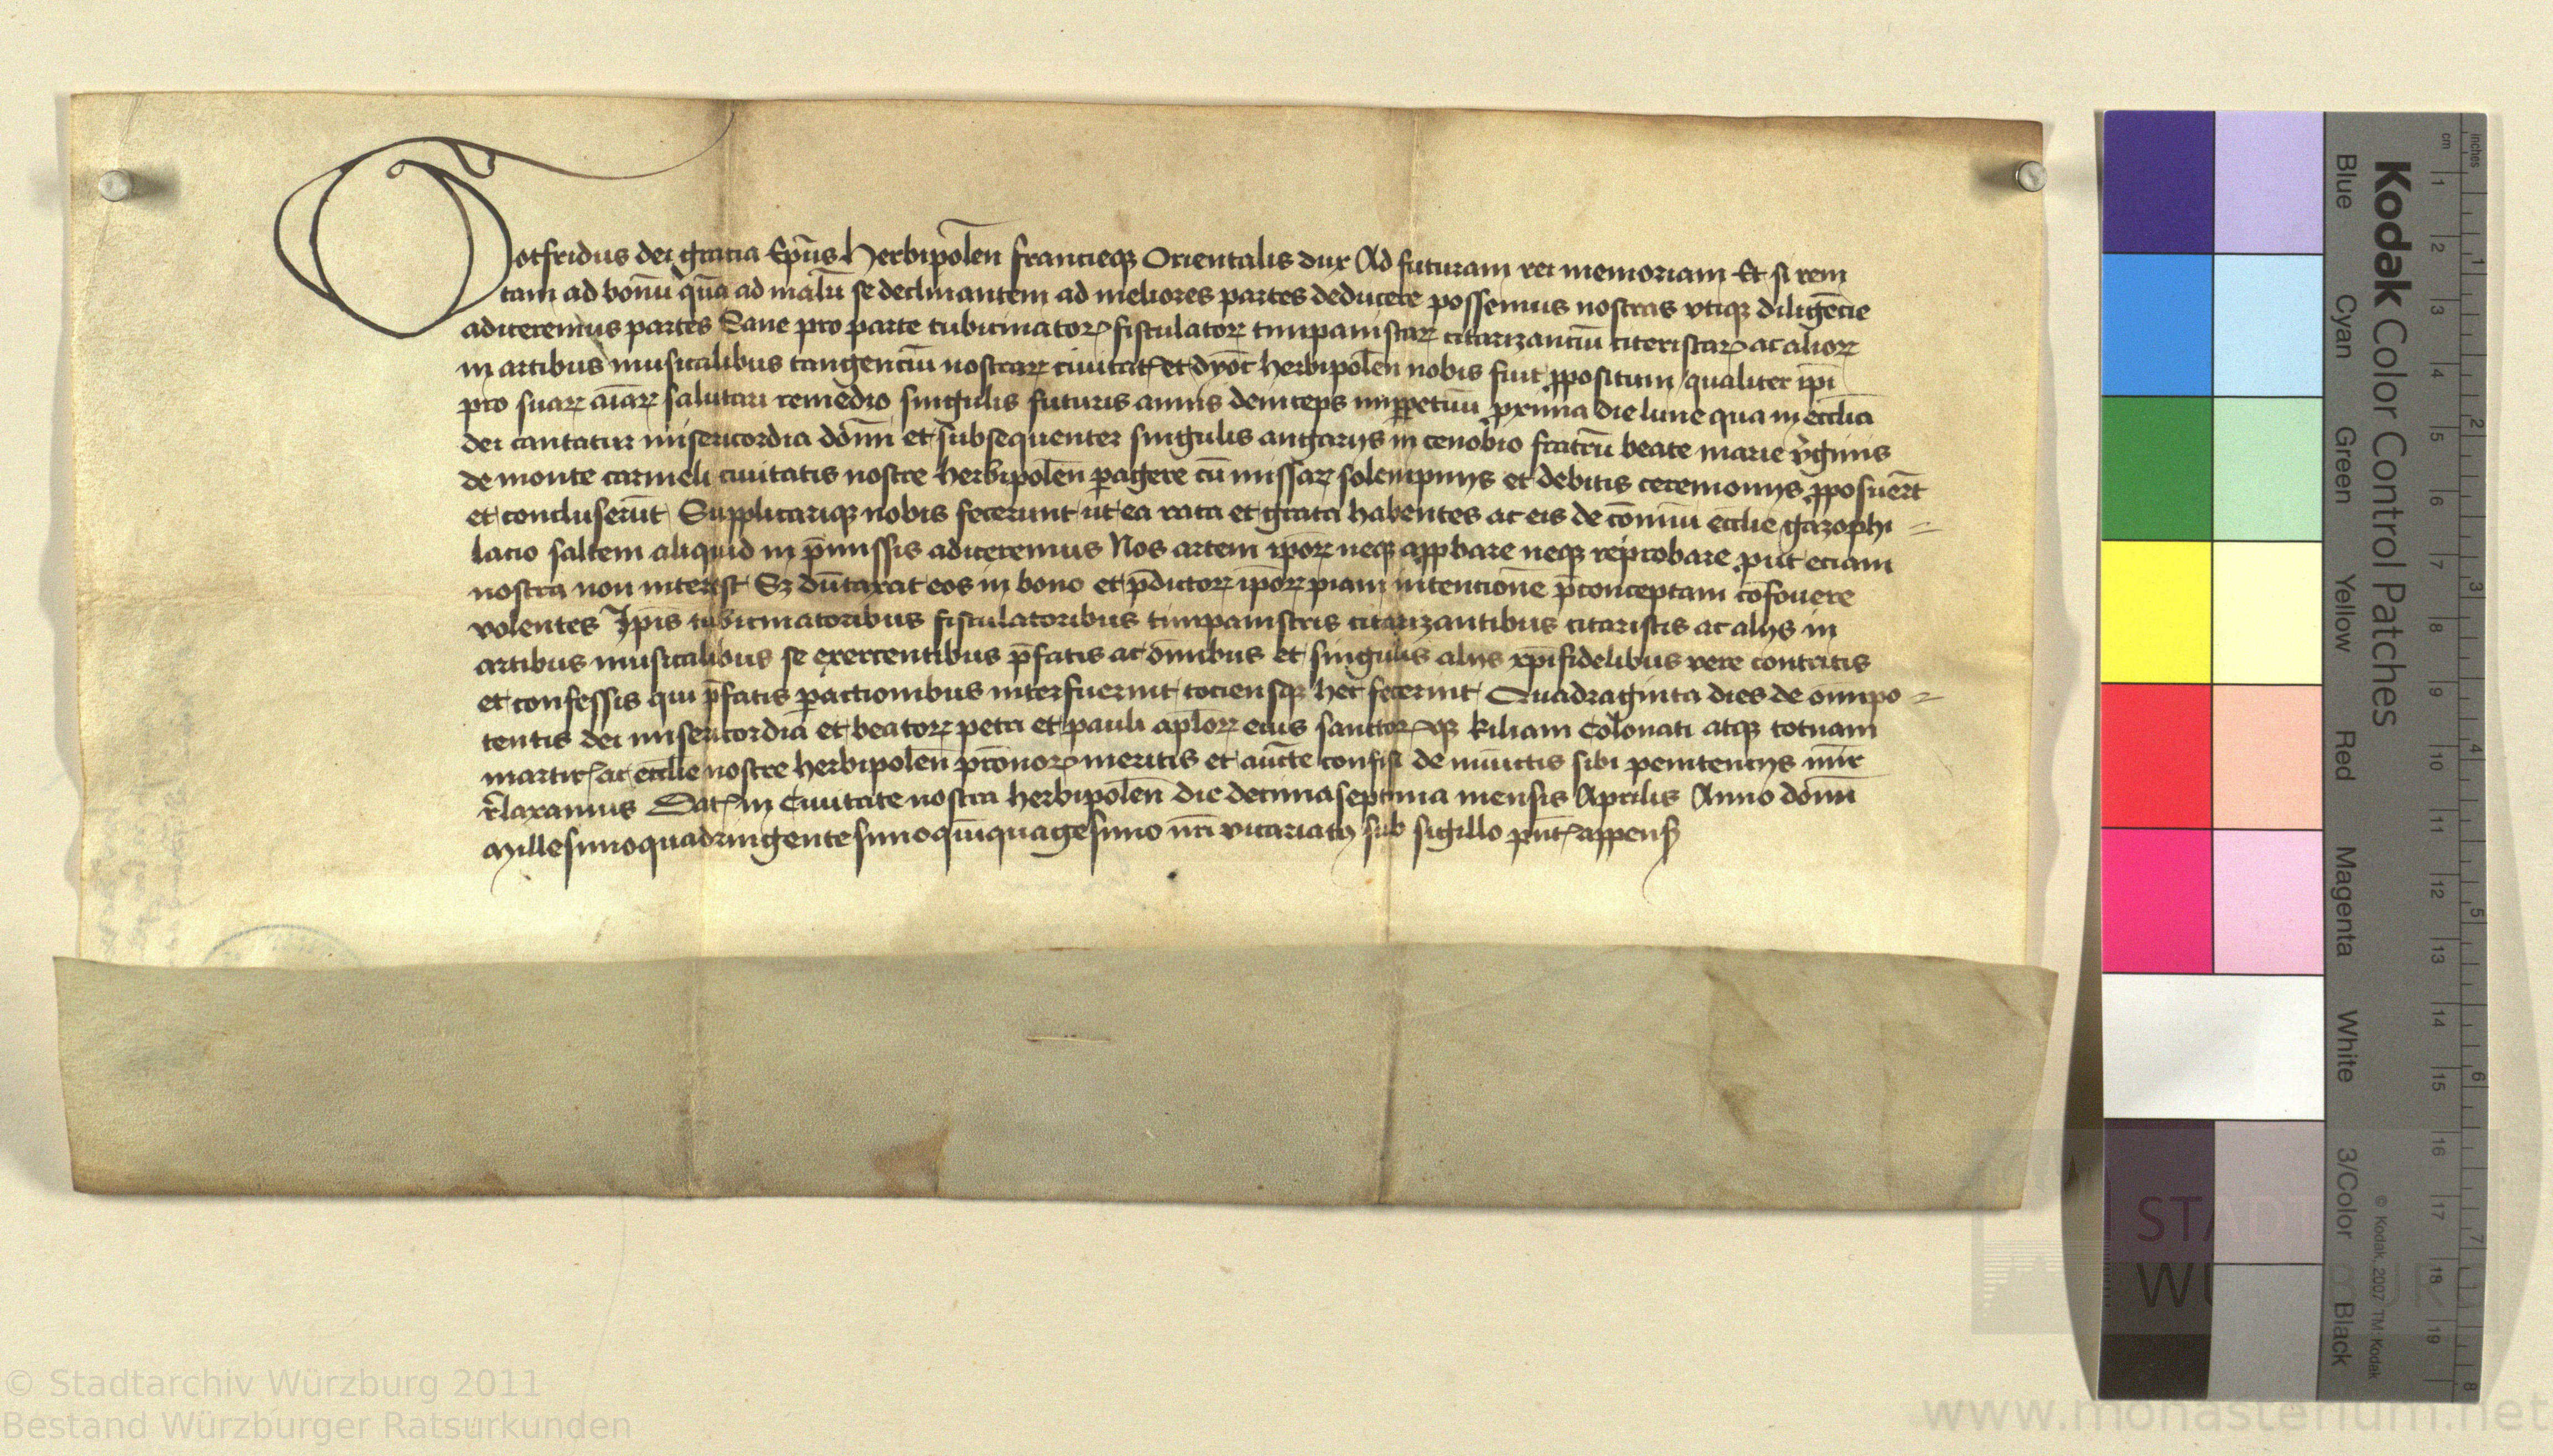 Gotfridus dei gratia Ep̄us Herbipolen̄ francieqꝫ Orientalis dux Ad futuram rei memoriam Et si rem
tam ad bonū quā ad malū se declinantem ad meliores partes deducere possemus nostras vtiqꝫ diligēcie
adiceremus partes Sane pro parte tubicinatoꝝ fistulatoꝝ timpanistaꝝ citarizanciū citeristaꝝ ac alioꝝ
in artibus musicalibus tangenciū nostraꝝ ciuitat et dyoc̄ herbipolen̄ nobis fuit ꝓpositum qualiter ip̄i
pro suaꝝ aīaꝝ salutari remedio singulis futuris annis deinceps inꝑpetuū ꝓxima die lune qua in eccl̄ia
dei cantatur misericordia domī et subsequenter singulis angarijs in cenobio fratrū beate marie v̓ginis
de monte carmeli ciuitatis nostre herbipolen̄ ꝑagere cū missaꝝ solempnijs et debitis ceremonijs ꝓposuer̄t
et concluserūt Supplicariqꝫ nobis fecerunt ut ea rata et grata habentes ac eis de cōmuni eccl̄ie gazophi =
lacio saltem aliquid in p̄missis adiceremus Nos artem ip̄oꝝ neqꝫ apꝓbare neqꝫ reprobare ꝓut eciam
nostra non interest Sꝫ dūtaxat eos in bono et p̄dictoꝝ ip̄oꝝ piam intencionē p̄conceptam cōfouere
volentes Ip̄is tubicinatoribus fistulatoribus timpanistris citarizantibus citaristis ac alijs in
artibus musicalibus se exercentibus p̄fatis ac om̄ibus et singulis alijs xp̄ifidelibus vere contritis
et confessis qui p̄fatis ꝑactionibus interfuerint tociensqꝫ hec fecerint Quadraginta dies de om̄ipo =
tentis dei misericordia et beatoꝝ petri et pauli ap̄loꝝ eius sanctoꝝqꝫ kiliani Colonati atqꝫ totnani
martir ac eccl̄ie nostre herbipolen̄ pr̄onoꝝ meritis et auc̄te confisi de iniūctis sibi penitencijs
r̓laxamus Dat in Ciuitate nostra herbipolen̄ die decimaseptima mensis Aprilis Anno domī
Millesimoquadringentesimoquīquagesimo nr̄i vicariatꝰ sub sigillo pn̄t appens
© Stadtarchiv Würzburg 2011
Bestand Würzburger Ratsurkunden
www.monasterium.net
Kodak Color Control Patches
Blue Cyan Green Yellow Red Magenta White 3/Color Black
© Kodak, 2007 TM: Kodak
inches 1 2 3 4 5 6 7 8
cm 1 2 3 4 5 6 7 8 9 10 11 12 13 14 15 16 17 18 19